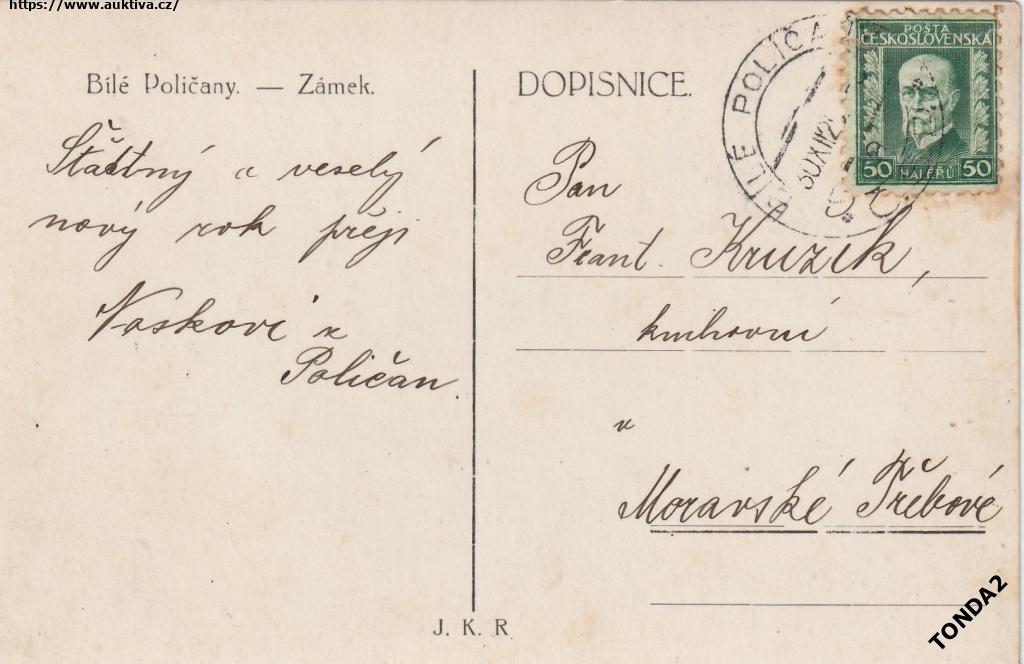 https://www.auktiva.cz/
Bílé Poličany. — Zámek.
Šťastný a veselý
nový rok přejí
Voskovi z
Poličan
J. K. R
DOPISNICE.
BÍLÉ POLIČA
30 XII 2
POŠTA
ČESKOSLOVENSKÁ
50 HALÉŘŮ 50
Pan
Frant. Kruzík,
knihovní
v
Moravské Třebové
TONDA2